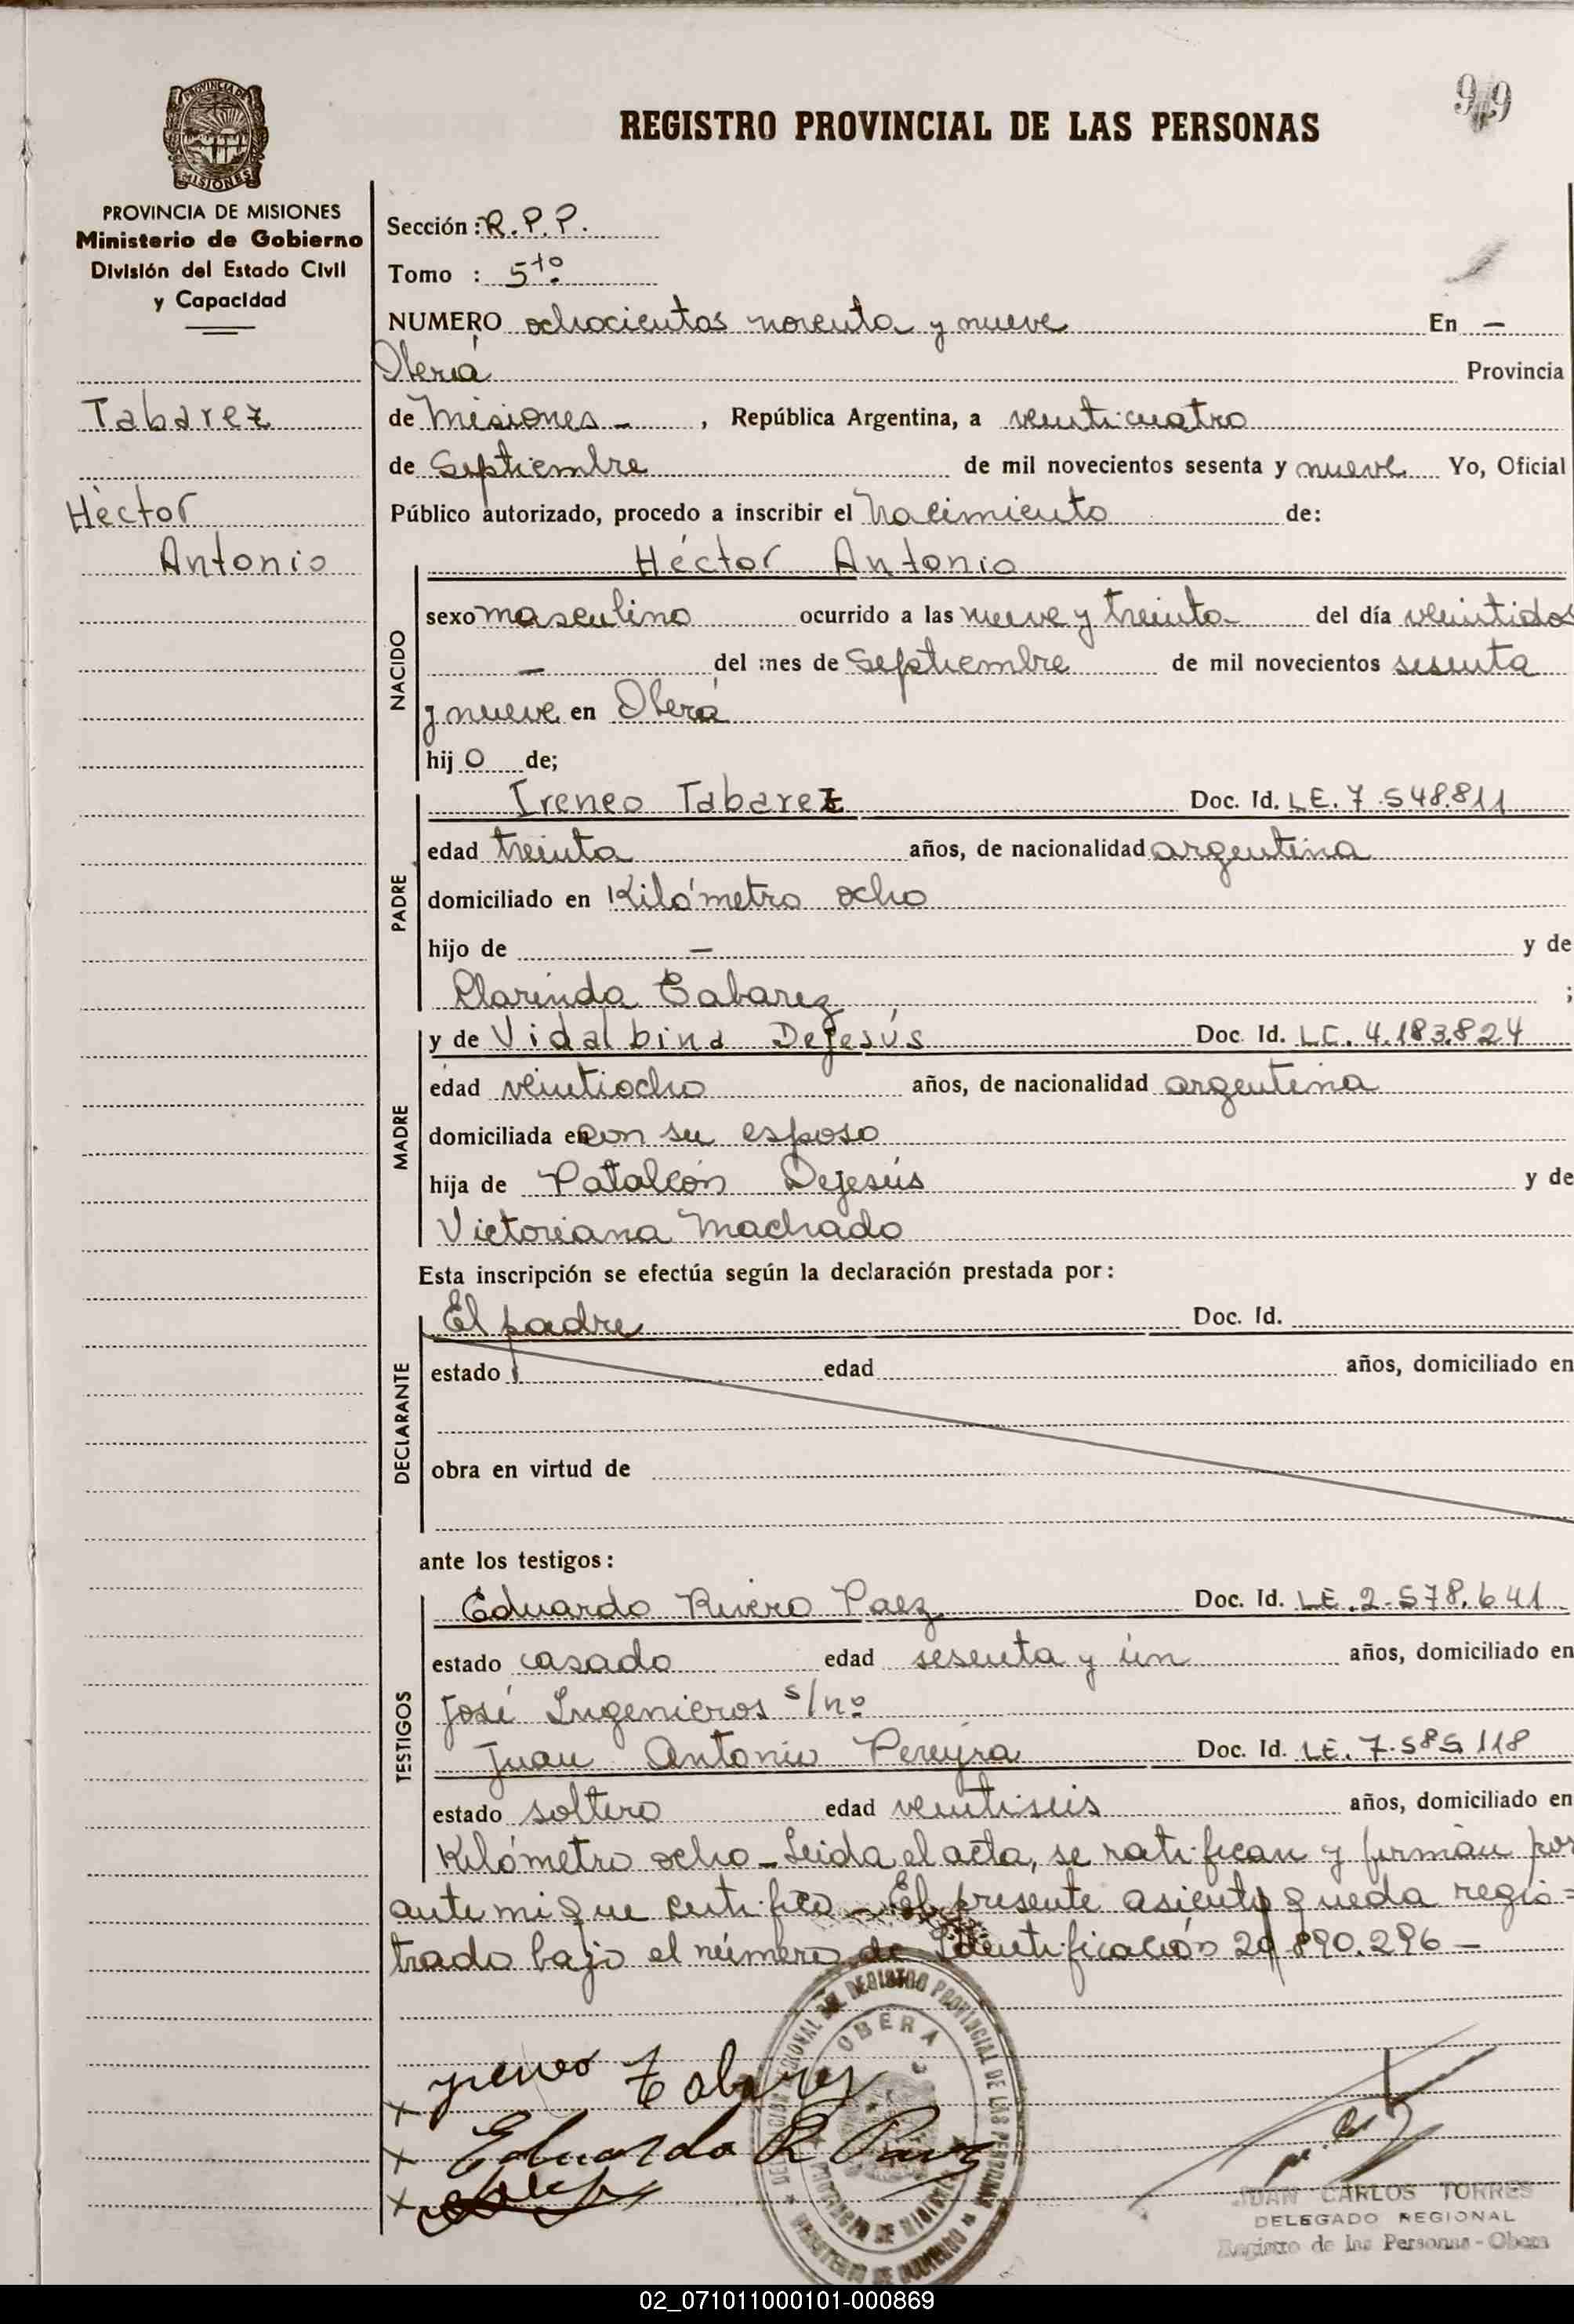 99
REGISTRO PROVINCIAL DE LAS PERSONAS
PROVINCIA DE MISIONES
MISIONES
PROVINCIA DE MISIONES
Ministerio de Gobierno
División del Estado Civil
y Capacidad
Tabarez
Héctor
Antonio
Sección : R.P.P.
Tomo : 5to
NUMERO ochocientos noventa y nueve En –
Oberá Provincia
de Misiones – , República Argentina, a veinticuatro
de Septiembre de mil novecientos sesenta y nueve Yo, Oficial
Público autorizado, procedo a inscribir el nacimiento de:
NACIDO
Héctor Antonio
sexo masculino ocurrido a las nueve y treinta del día veintidos
– del mes de Septiembre de mil novecientos sesenta
y nueve en Oberá
hij o de;
PADRE
Ireneo Tabarez Doc. Id. LE. 7.548.811
edad treinta años, de nacionalidad argentina
domiciliado en Kilómetro ocho
hijo de – y de
Clarinda Tabarez ;
MADRE
y de Vidalbina Dejesús Doc. Id. LC. 4.183.824
edad veintiocho años, de nacionalidad argentina
domiciliada en con su esposo
hija de Patalcón Dejesús y de
Victoriana Machado
Esta inscripción se efectúa según la declaración prestada por:
DECLARANTE
El padre Doc. Id.
estado edad años, domiciliado en
obra en virtud de
ante los testigos:
TESTIGOS
Eduardo Rivero Paez Doc. Id. LE. 2.578.641
estado casado edad sesenta y un años, domiciliado en
José Ingenieros s/nº
Juan Antonio Pereyra Doc. Id. LE. 7.585 118
estado soltero edad veintiseis años, domiciliado en
Kilómetro ocho – Leida el acta, se ratifican y firman por
ante mi que certifico – El presente asiento queda regis=
trado bajo el número de Identificación 20 890.296 –
DELEGACION REGIONAL DEL REGISTRO PROVINCIAL DE LAS PERSONAS
OBERA
PROVINCIA DE MISIONES
MINISTERIO DE GOBIERNO
x Yreneo Tabarez
x Eduardo R Paez
x
JUAN CARLOS TORRES
DELEGADO REGIONAL
Registro de las Personas - Obera
02_071011000101-000869